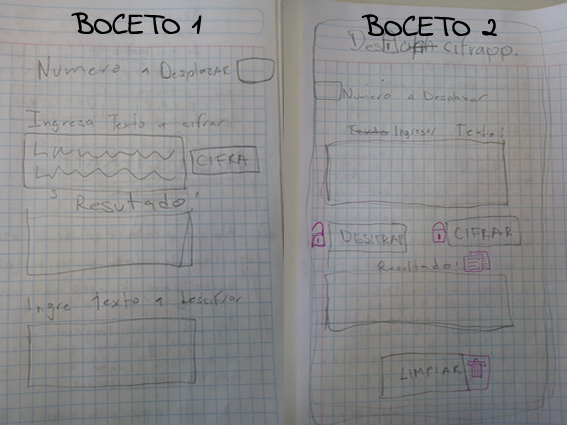 BOCETO 1
Numero a Desplazar
Ingresa Texto a cifrar
CIFRA
Resutado:
Ingre texto a Descifrar
BOCETO 2
cifrapp.
Numero a Desplazar
Texto Ingresar Texto:
DESIFRAR
CIFRAR
Resultado:
LIMPIAR